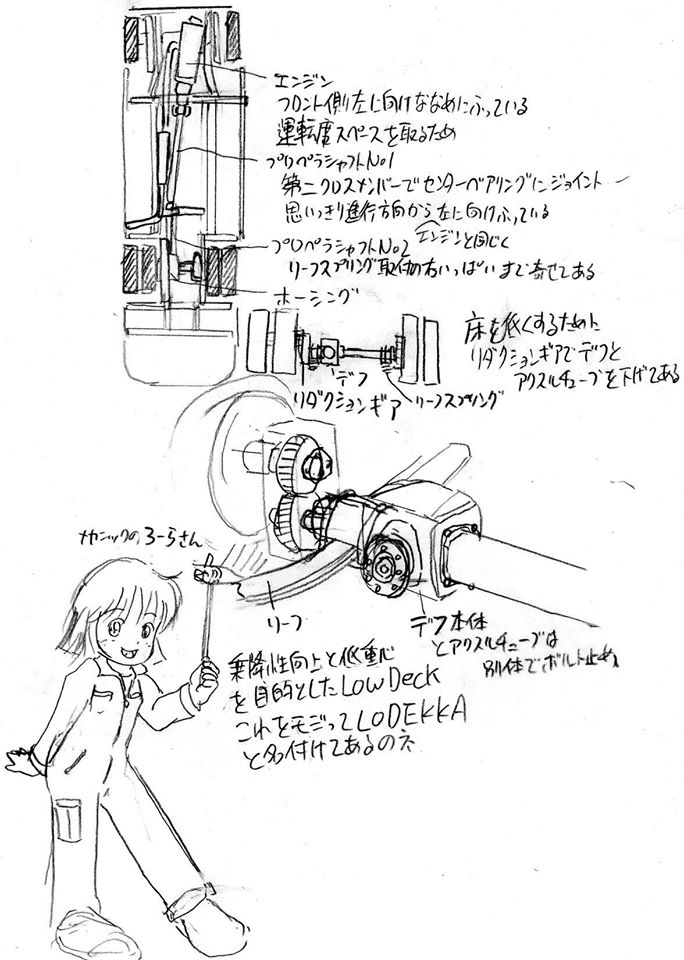 エンジン
フロント側左に向けななめにふっている
運転席スペースを取るため
プロペラシャフトNo1
第二クロスメンバーでセンターベアリングにジョイント
思いっきり進行方向から左に向けふっている
エンジンと同じく
プロペラシャフトNo2
リーフスプリング取付の右いっぱいまで寄せてある
ホーシング
床を低くするために
リダクションギアでデフと
アクスルチューブを下げてある
デフ
リダクションギア
リーフスプリング
メカニックのろーらさん
リーフ
デフ本体
とアクスルチューブは
別体でボルト止め
乗降性向上と低重心
を目的としたLOW Deck
これをモジってLODEKKA
と名付けてあるのネ